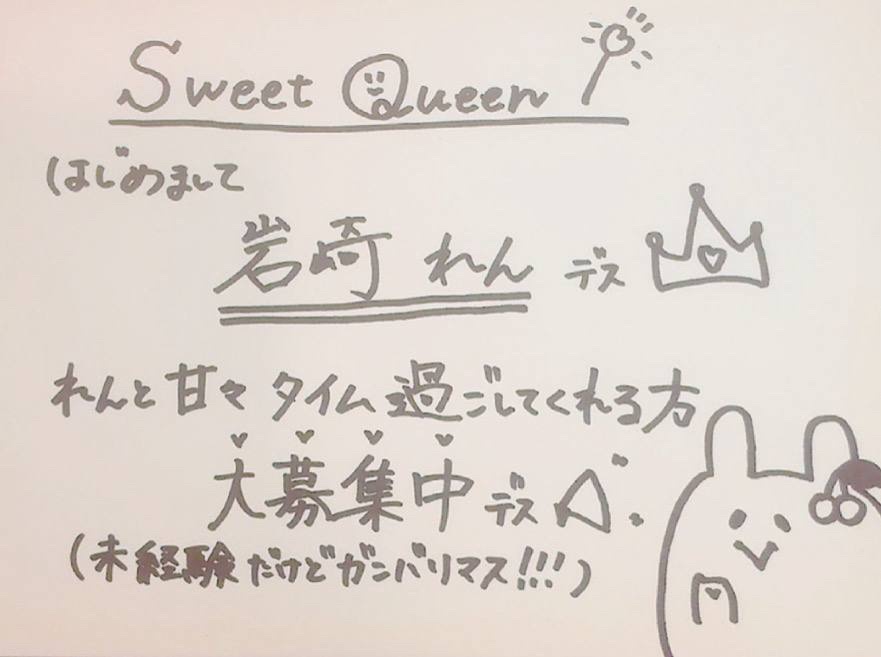 Sweet Queen
はじめまして
岩﨑 れん デス
れんと甘々タイム過ごしてくれる方
大募集中デス
(未経験だけどガンバリマス!!!)